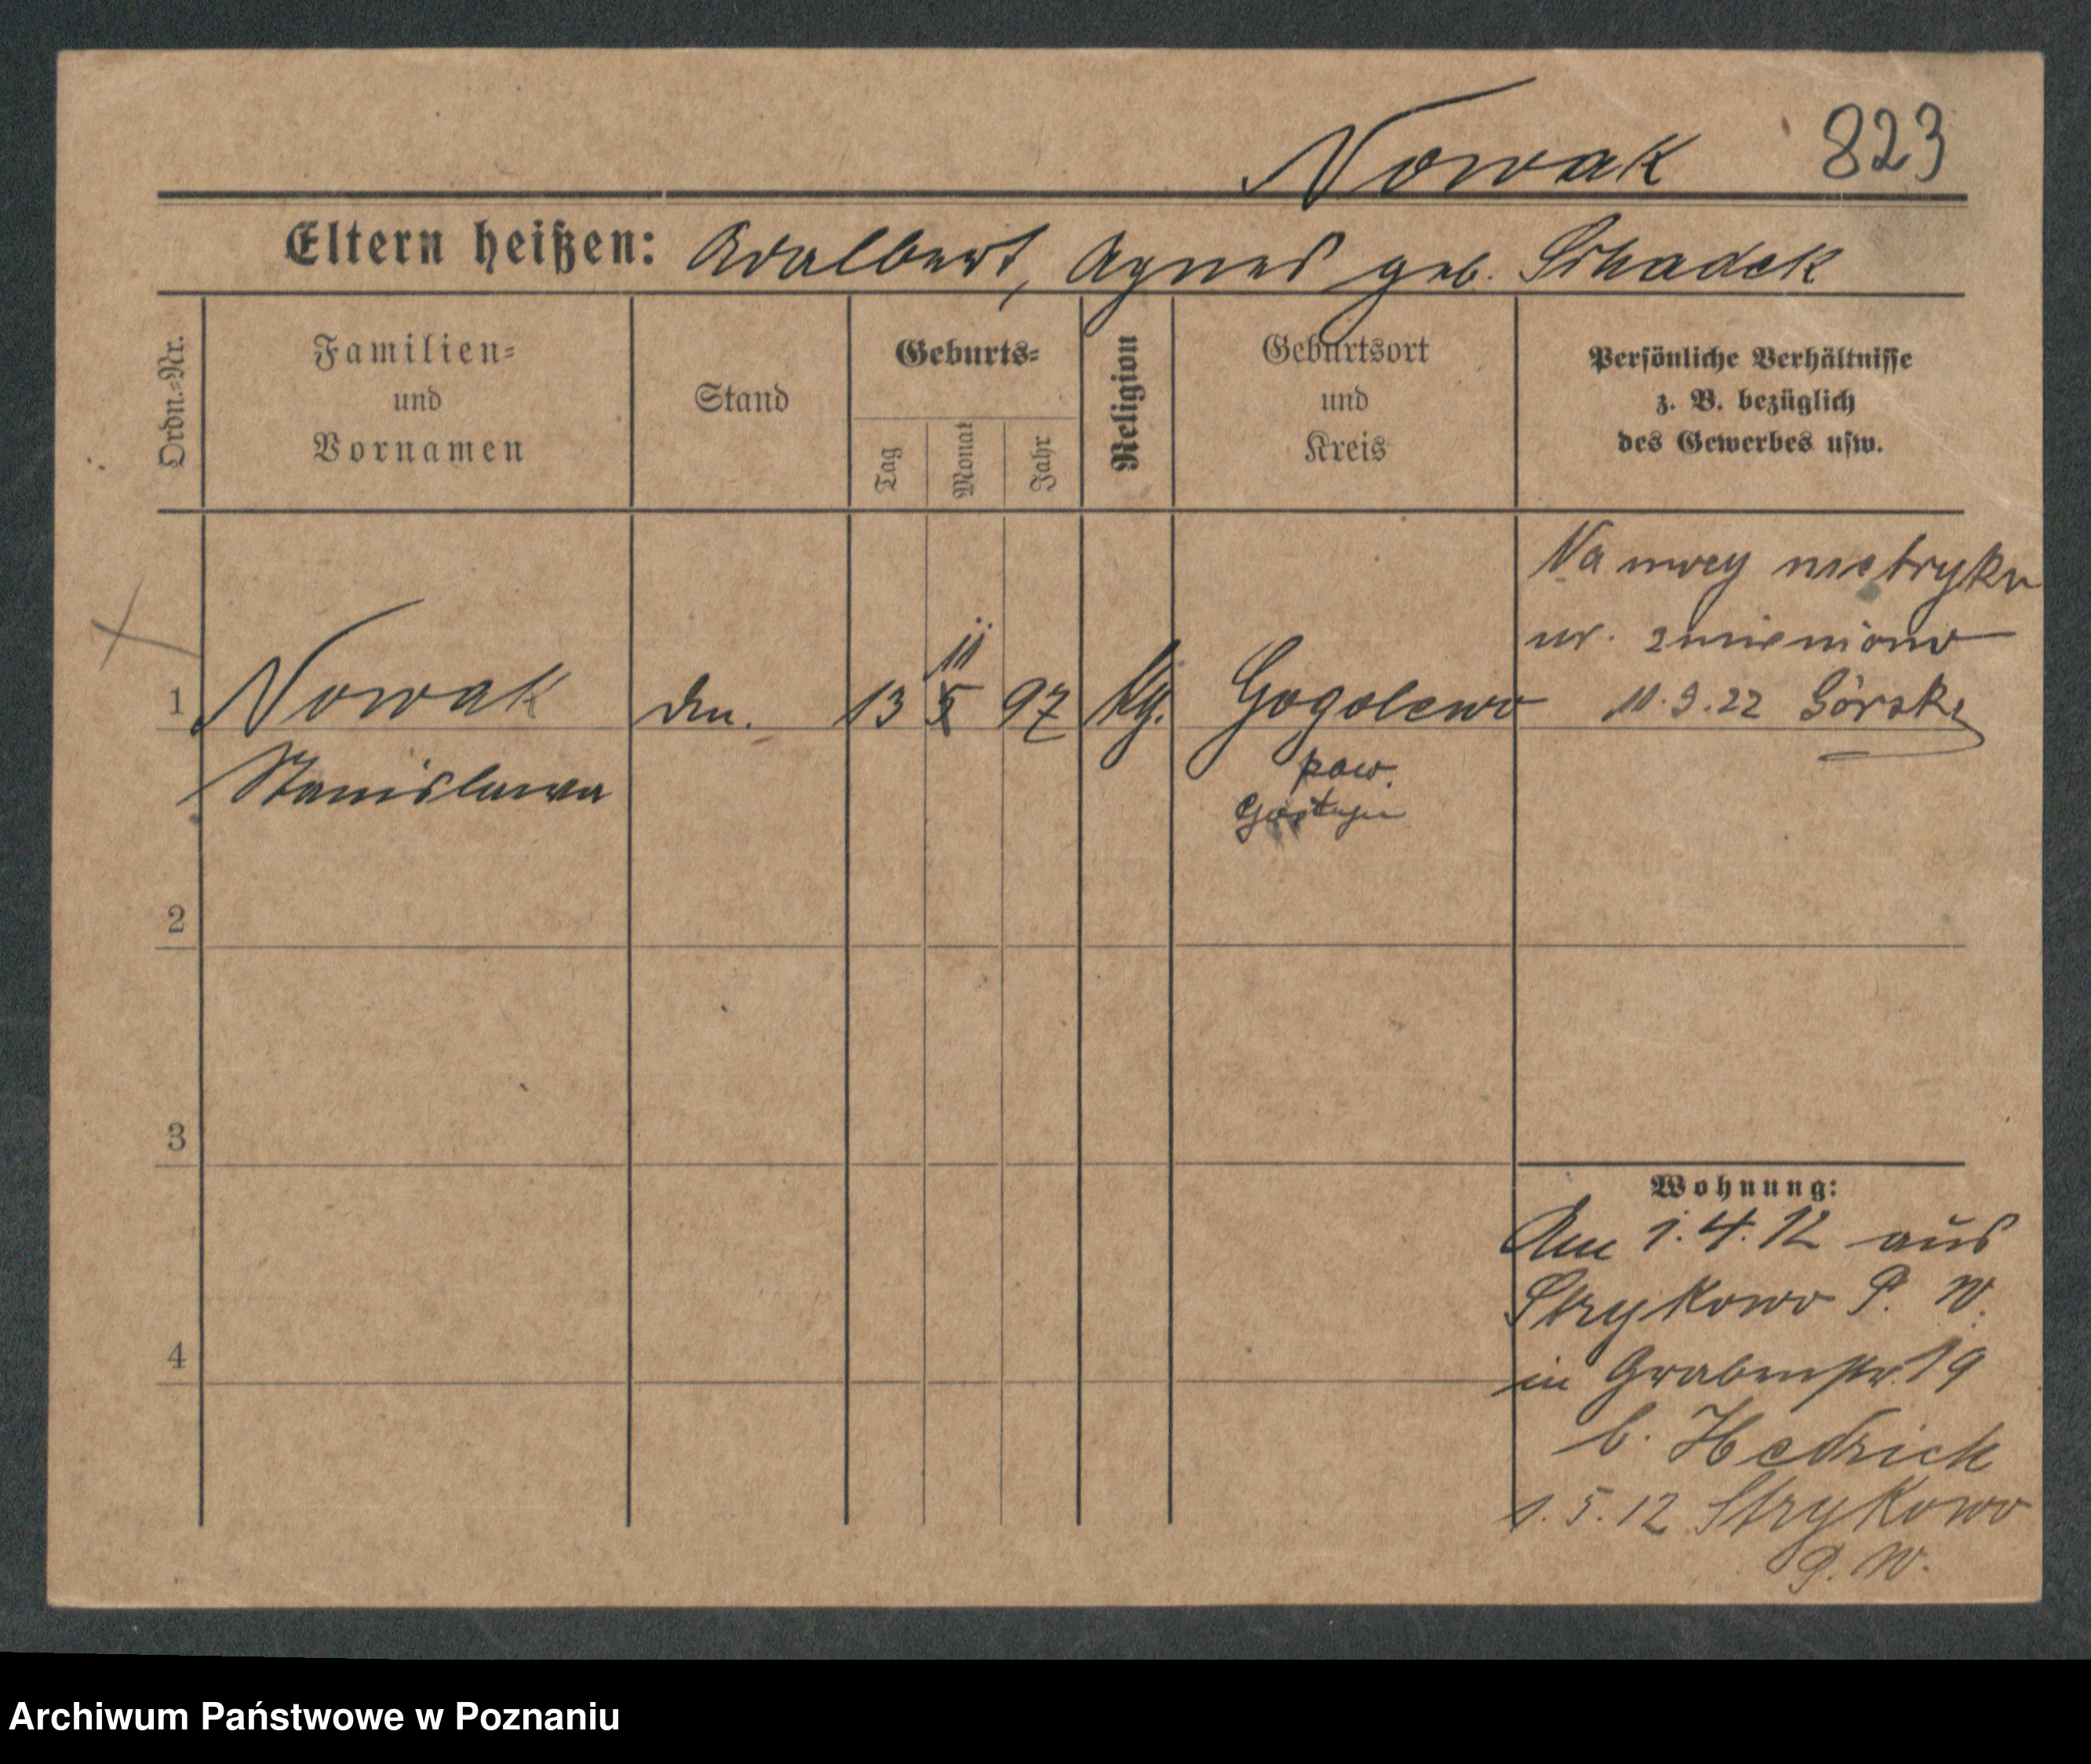 Nowak 823
Eltern heißen: Adalbert, Agnes geb. Schadek
Ordn.=Nr.
Familien=
und
Vornamen
Stand
Geburts=
Tag
Monat
Jahr
Religion
Geburtsort
und
Kreis
Persönliche Verhältnisse
z. B. bezüglich
des Gewerbes usw.
Na mocy metryki
ur. zmieniono
11.9.22 Górski
11
1 Nowak 13 5 97 Gogolewo
Stanislawa
pow.
Gostyń
2
3
4
Wohnung:
Am 1.4.12 aus
Strykowo P. W.
in Grabenstr. 19
b. Hedrich
1.5.12 Strykowo
P. W.
Archiwum Państwowe w Poznaniu